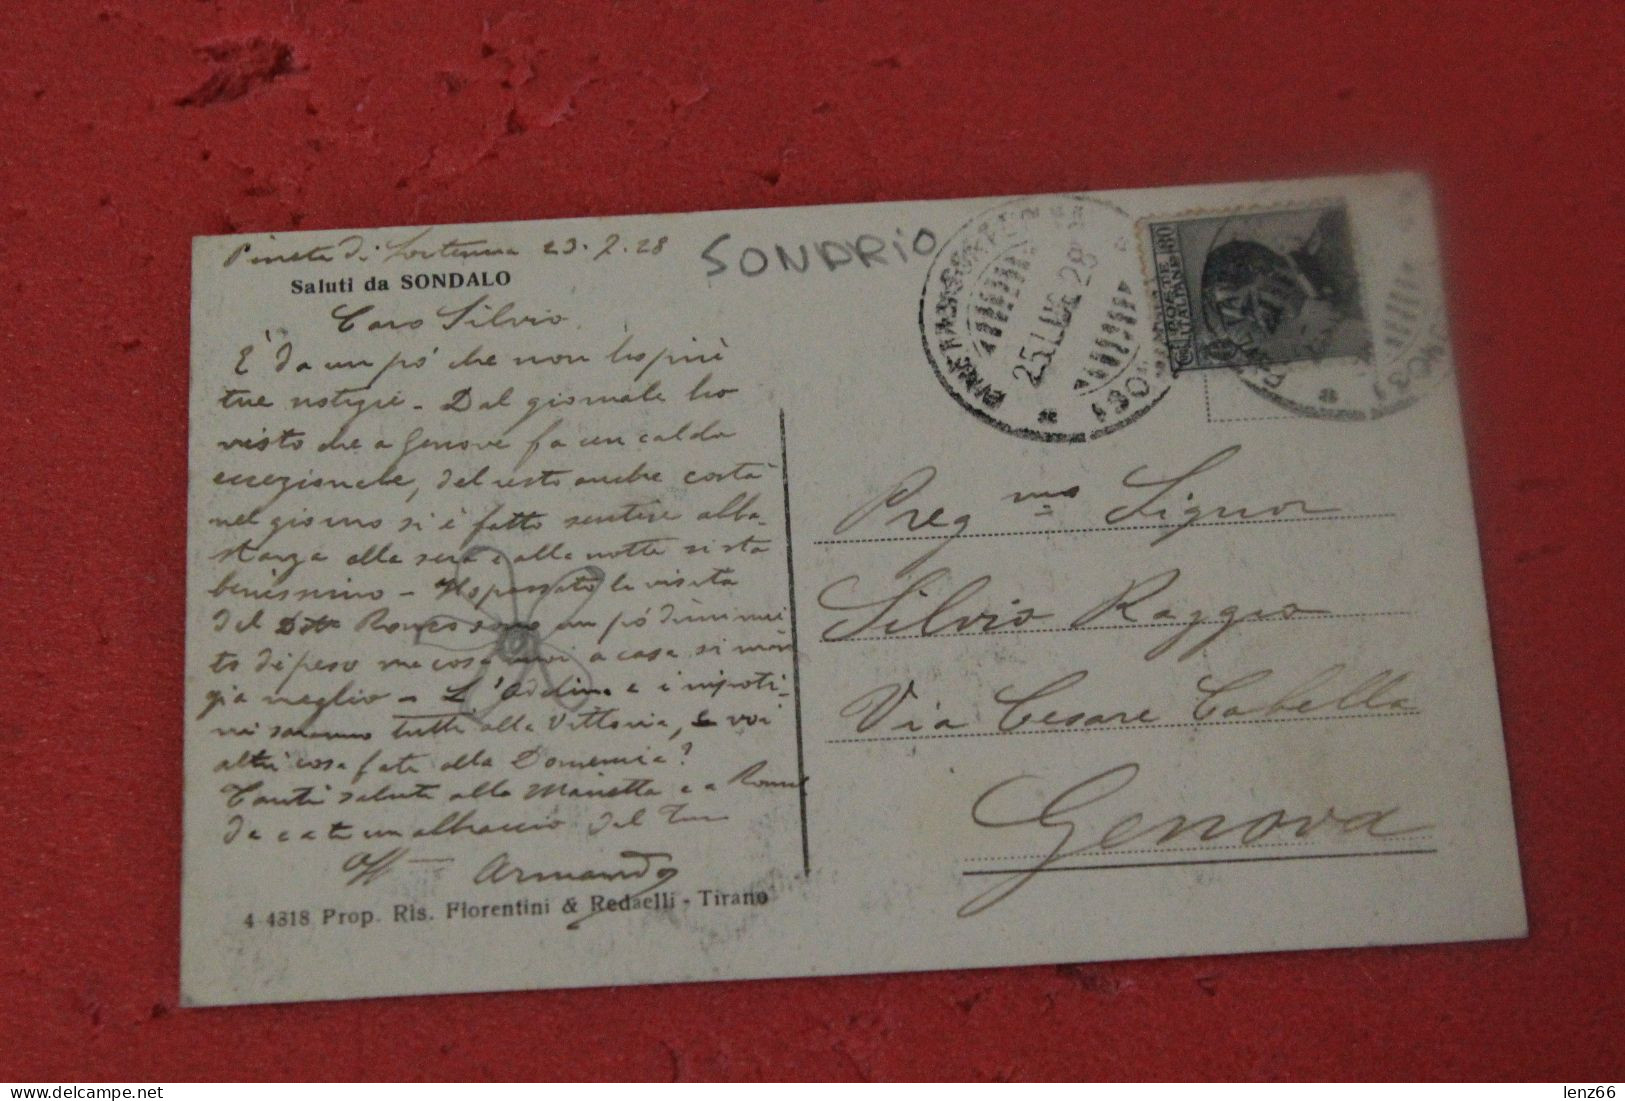 Pineta di Sortenna 23.7.28
SONDRIO
Saluti da SONDALO
Caro Silvio
È da un pó che non ho più
tue notizie - Dal giornale ho
visto che a Genova fa un caldo
eccezionale, del resto anche costà
nel giorno si è fatto sentire abba-
stanza alla sera e alla notte si sta
benissimo - Ho passato la visita
del Dott Ronzo sono un pó diminui
to di peso ma cosa vuoi a casa si man
gia meglio - L'Adelina e i nipoti-
ni saranno tutti alla Vittoria, e voi
altri cosa fate alla Domenica?
Tanti saluti alla Marietta e a
da a te un abbraccio del Tuo
Aff Armando
4-4318 Prop. Ris. Fiorentini & Redaelli - Tirano
25 LUG 28
POSTE ITALIANE
Preg mo Signor
Silvio Raggio
Via Cesare Cabella
Genova
lenz66